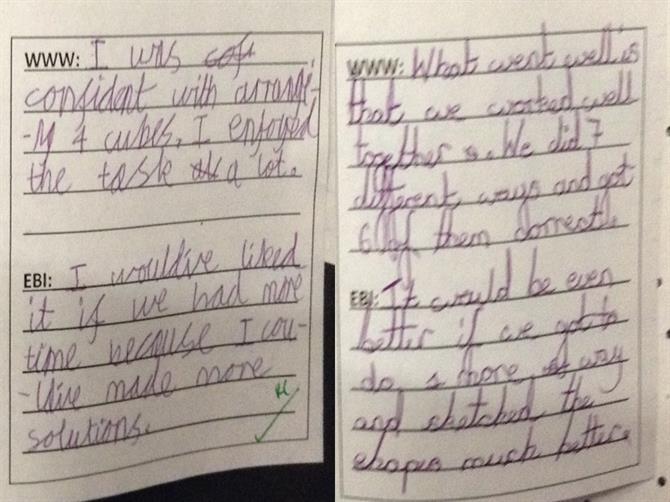 WWW: I was
confident with arrangi-
-ng 4 cubes. I enjoyed
the task a lot.
EBI: I would've liked
it if we had more
time because I cou-
-ld've made more
solutions.
WWW: What went well is
that we worked well
together. We did 7
different ways and got
6 of them correct.
EBI: It would be even
better if we got to
do 1 more way
and sketched the
shapes much better.